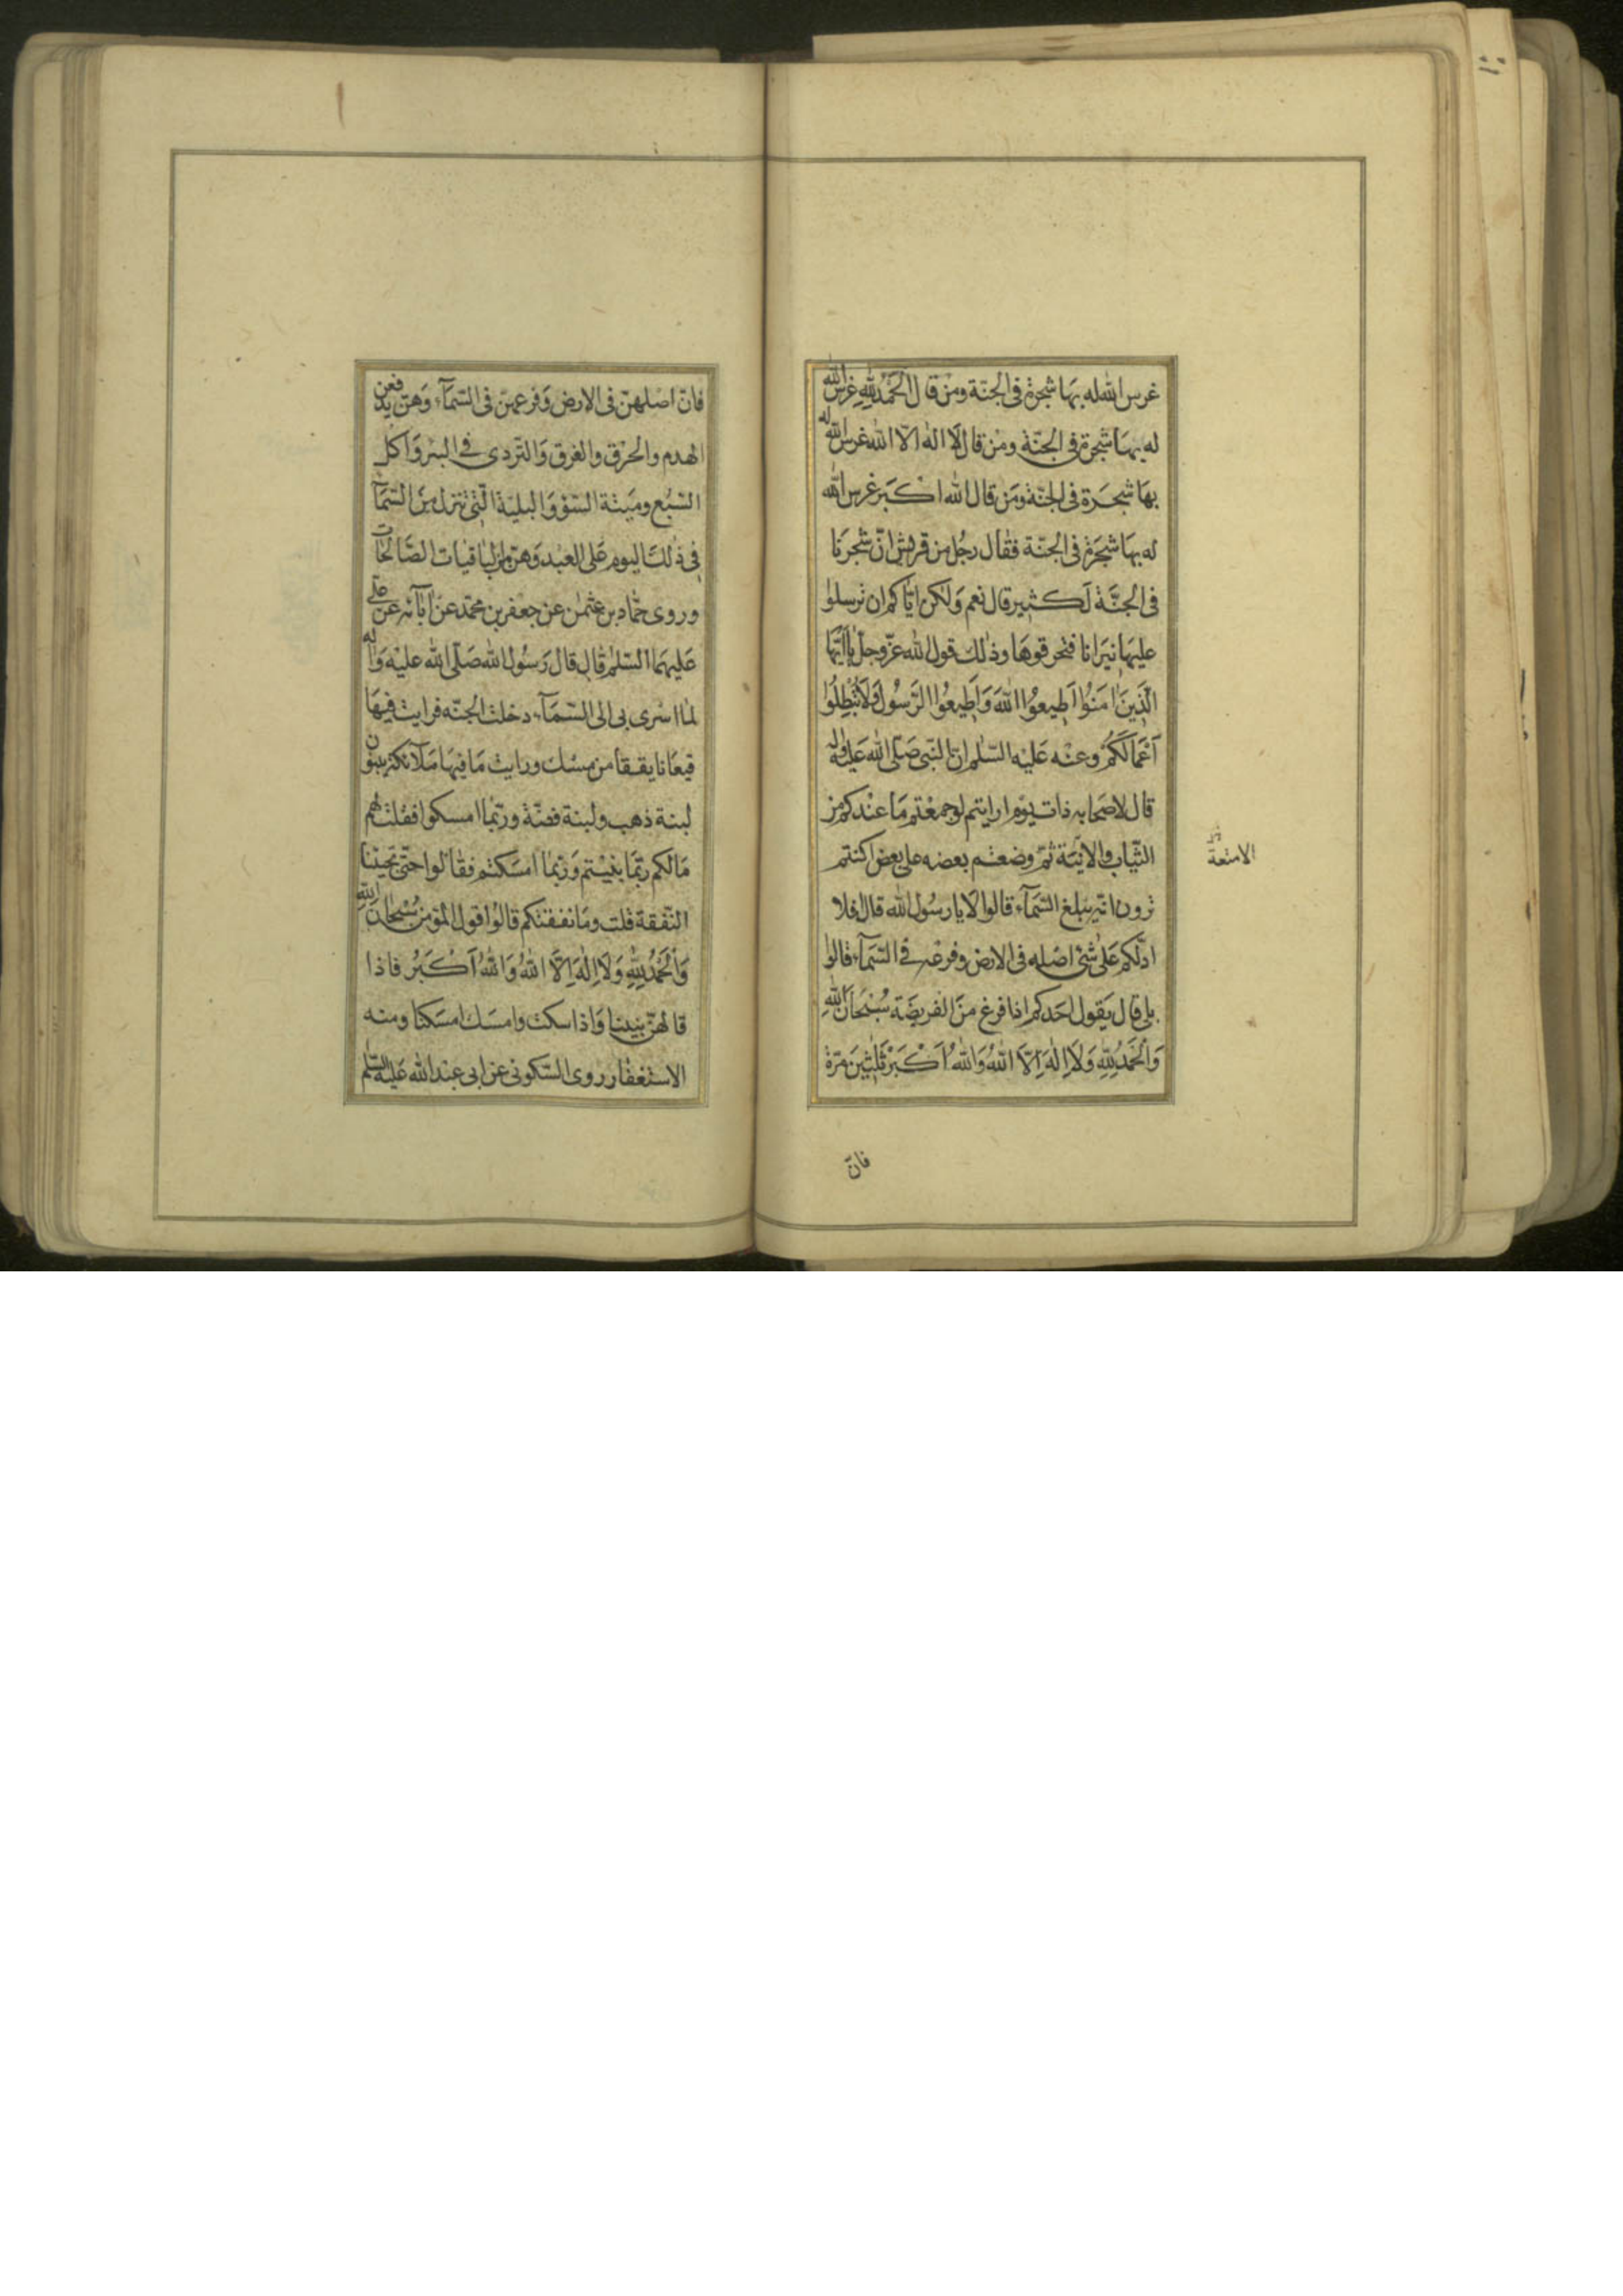 غرس الله له بها شجرة فى الجنّة ومن قال الحمد لله غرس الله
له بها شجرة فى الجنّة ومن قال لا اله الّا الله غرس الله له
بها شجرة فى الجنّة ومن قال الله اكبر غرس الله
له بها شجرة فى الجنّة فقال رجل من قريش انّ شجرنا
فى الجنّة لكثير قال نعم ولكن ايّاكم ان ترسلوا
عليها نيرانا فتحرقوها وذلك قول الله عزّ وجلّ يا ايّها
الّذين امنوا اطيعوا الله واطيعوا الرّسول ولا تبطلوا
اعمالكم وعنه عليه السّلم انّ النّبى صلّى الله عليه واله
قال لاصحابه ذات يوم ارايتم لو جمعتم ما عندكم من
الثّياب والانية ثمّ وضعتم بعضه على بعض اكنتم
الامتعة
ترون انّه يبلغ السّمآء قالوا لا يا رسول الله قال افلا
ادلّكم على شئ اصله فى الارض وفرعه فى السّمآء قالوا
بلى قال يقول احدكم اذا فرغ من الفريضة سبحان الله
والحمد لله ولا اله الّا الله والله اكبر ثلثين مرّة
فانّ
فانّ اصلهنّ فى الارض وفرعهنّ فى السّمآء وهنّ يدفعن
الهدم والحرق والغرق والتّردى فى البئر واكل
السّبع وميتة السّوء والبليّة الّتى تنزل من السّمآء
فى ذلك اليوم على العبد وهنّ من الباقيات الصّالحات
وروى حمّاد بن عثمن عن جعفر بن محمّد عن ابآئه عن على
عليهما السّلم قال قال رسول الله صلّى الله عليه واله
لما اسرى بى الى السّمآء دخلت الجنّه فرايت فيها
قيعانا يققا من مسك ورايت ما فيها ملآئكة يبنون
لبنة ذهب ولبنة فضّة وربّما امسكوا فقلت لهم
ما لكم ربّما بنيتم وربّما امسكتم فقالوا حتّى تجيئنا
النّفقة قلت وما نفقتكم قالوا قول المؤمن سبحان الله
والحمد لله ولا اله الّا الله والله اكبر فاذا
قالهنّ بنينا واذا سكت وامسك امسكنا ومنه
الاستغفار روى السّكونى عن ابى عبد الله عليه السّلم